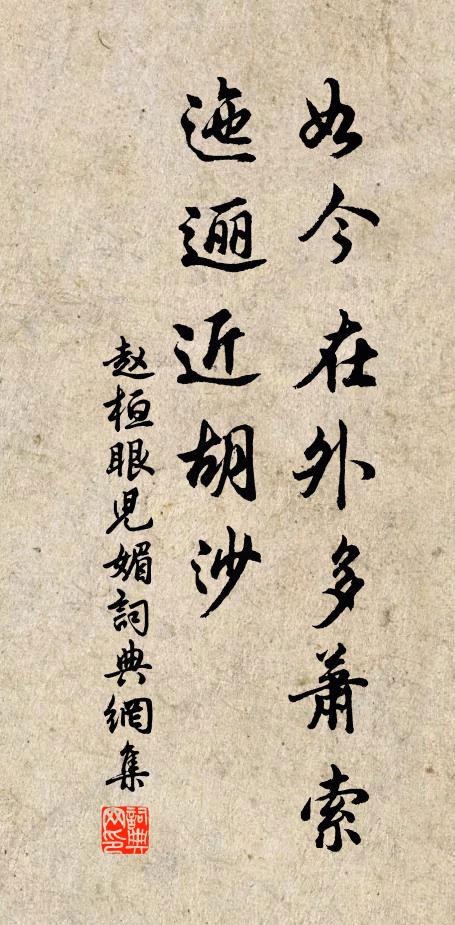 如今在外多萧索
迤逦近胡沙
赵桓眼児媚詞典網集
詞典网印